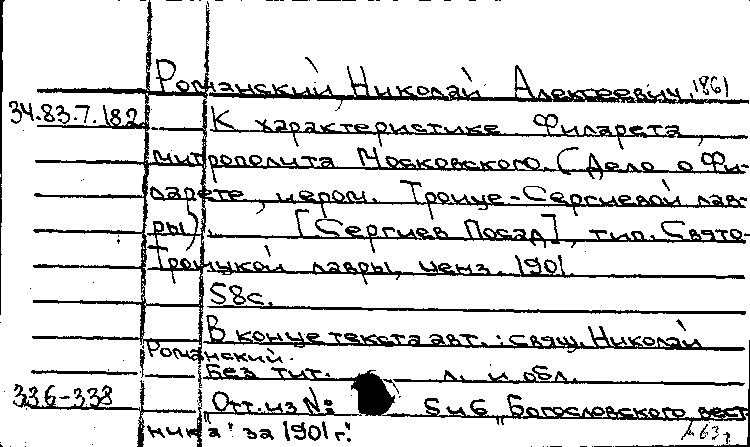 Романский, Николай Алексеевич, 1861
34.83.7.182 К характеристике Филарета,
митрополита Московского. (Дело о Фи-
ларете, иером. Троице-Сергиевой лав-
ры). [Сергиев Посад], тип. Свято-
Троицкой лавры, ценз. 1901.
58с.
В конце текста авт.: свящ. Николай
Романский.
Без тит. л. и обл.
336-338 Отт. из №: 5 и 6 "Богословского вест-
ника" за 1901 г.